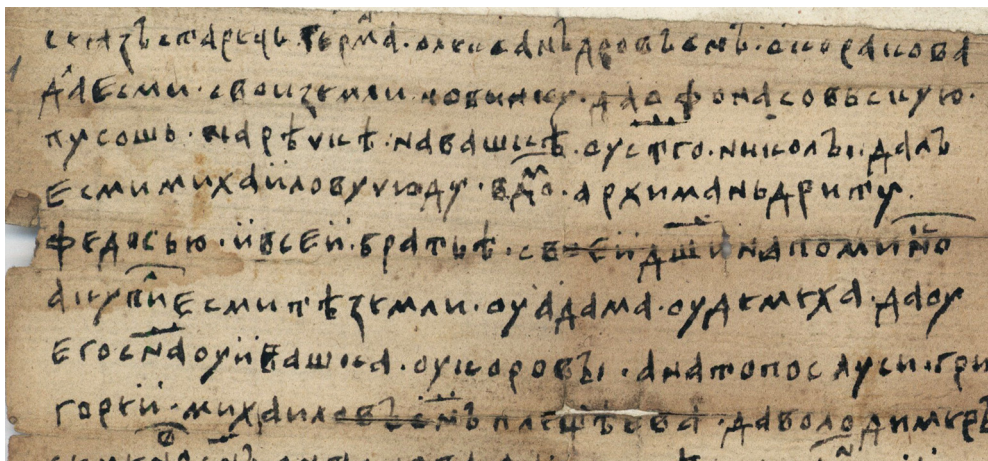 се язъ старець герма олексанъдровъ снъ скоракова
да есми свои земли новинку да офонасовьскую
пусошь на рѣчкѣ на вашкѣ оу стго николы далъ
есми михаилову чюду в дмо архиманьдриту
федосью и всеи братьѣ св еи дши на помино
а купи есми тѣ земли оу адама оу демеха да оу
его сна оу ивашка оу коровы а на то послуси гри
гореи михаиловъ снъ плещѣева да володимеръ